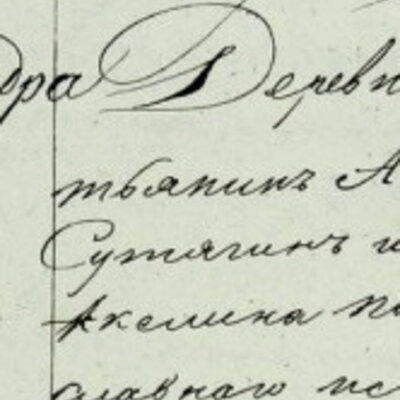 дра Деревн
тьянинъ А
Сутягинъ и
Акелина пр
славнаго ис